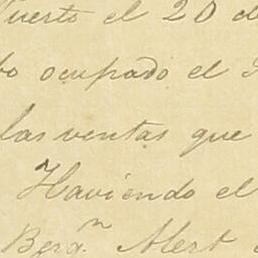 uerto el 20 de
o ocupado el
las ventas que
Haviendo el
Berg.n Mert